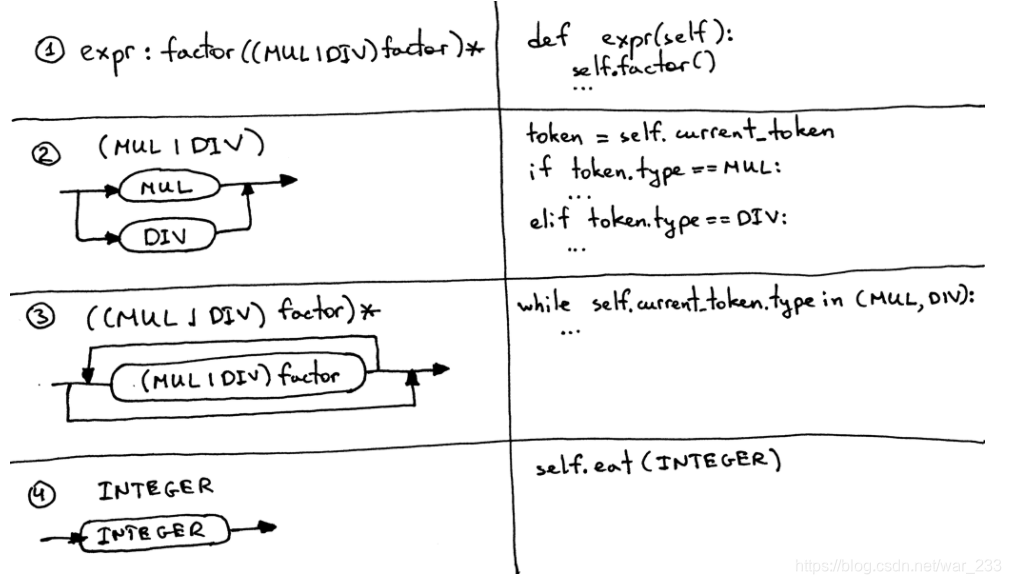 ① expr : factor((MUL|DIV)factor)*
def expr(self):
self.factor()
...
② (MUL | DIV)
MUL
DIV
token = self.current_token
if token.type == MUL:
...
elif token.type == DIV:
...
③ ((MUL | DIV) factor)*
(MUL | DIV) factor
while self.current_token.type in (MUL, DIV):
...
④ INTEGER
INTEGER
self.eat(INTEGER)
https://blog.csdn.net/war_233